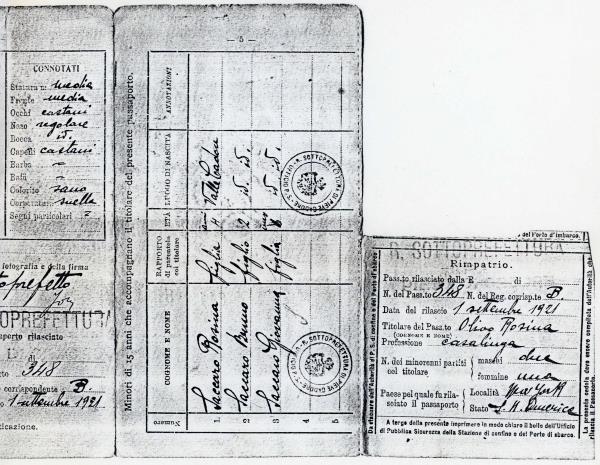 CONNOTATI
Statura m. media
Fronte media
Occhi castani
Naso regolare
Bocca id.
Capelli castani
Barba "
Baffi "
Colorito sano
Corporatura snella
Segni particolari =
fotografia e della firma
SOTTOPREFETTURA
passaporto rilasciato
di
348
corrispondente B.
1 settembre 1921
— 5 —
Minori di 15 anni che accompagnano il titolare del presente passaporto.
Numero COGNOME E NOME RAPPORTO di parentela col titolare ETÀ LUOGO DI NASCITA ANNOTAZIONI
1. Saccaro Rosina figlia 4 Valle Cadore
2 Saccaro Bruno figlio 2 id. id.
3 Saccaro Giovanna figlia 8 id. id.
4
5
R. SOTTOPREFETTURA DI PIEVE CADORE
R. SOTTOPREFETTURA DI PIEVE CADORE
del Porto d'imbarco.
R. SOTTOPREFETTURA
Rimpatrio.
Passto. rilasciato dalla R di
N. del Pass.to 348 N. del Reg. corrisp.te B.
Data del rilascio 1 settembre 1921
Titolare del Pass.to Olivo Rosina
(COGNOME E NOME)
Professione casalinga
N. dei minorenni partiti col titolare
maschi due
femmine una
Paese pel quale fu rilasciato il passaporto
Località New York
Stato S. U. America
A tergo della presente imprimere in modo chiaro il bollo dell'Ufficio
di Pubblica Sicurezza della Stazione di confine o del Porto di sbarco.
Da staccare dall'Autorità di P. S. di confine o del Porto di sbarco
La presente cedola deve essere compilata dall'Autorità che
rilascia il Passaporto.